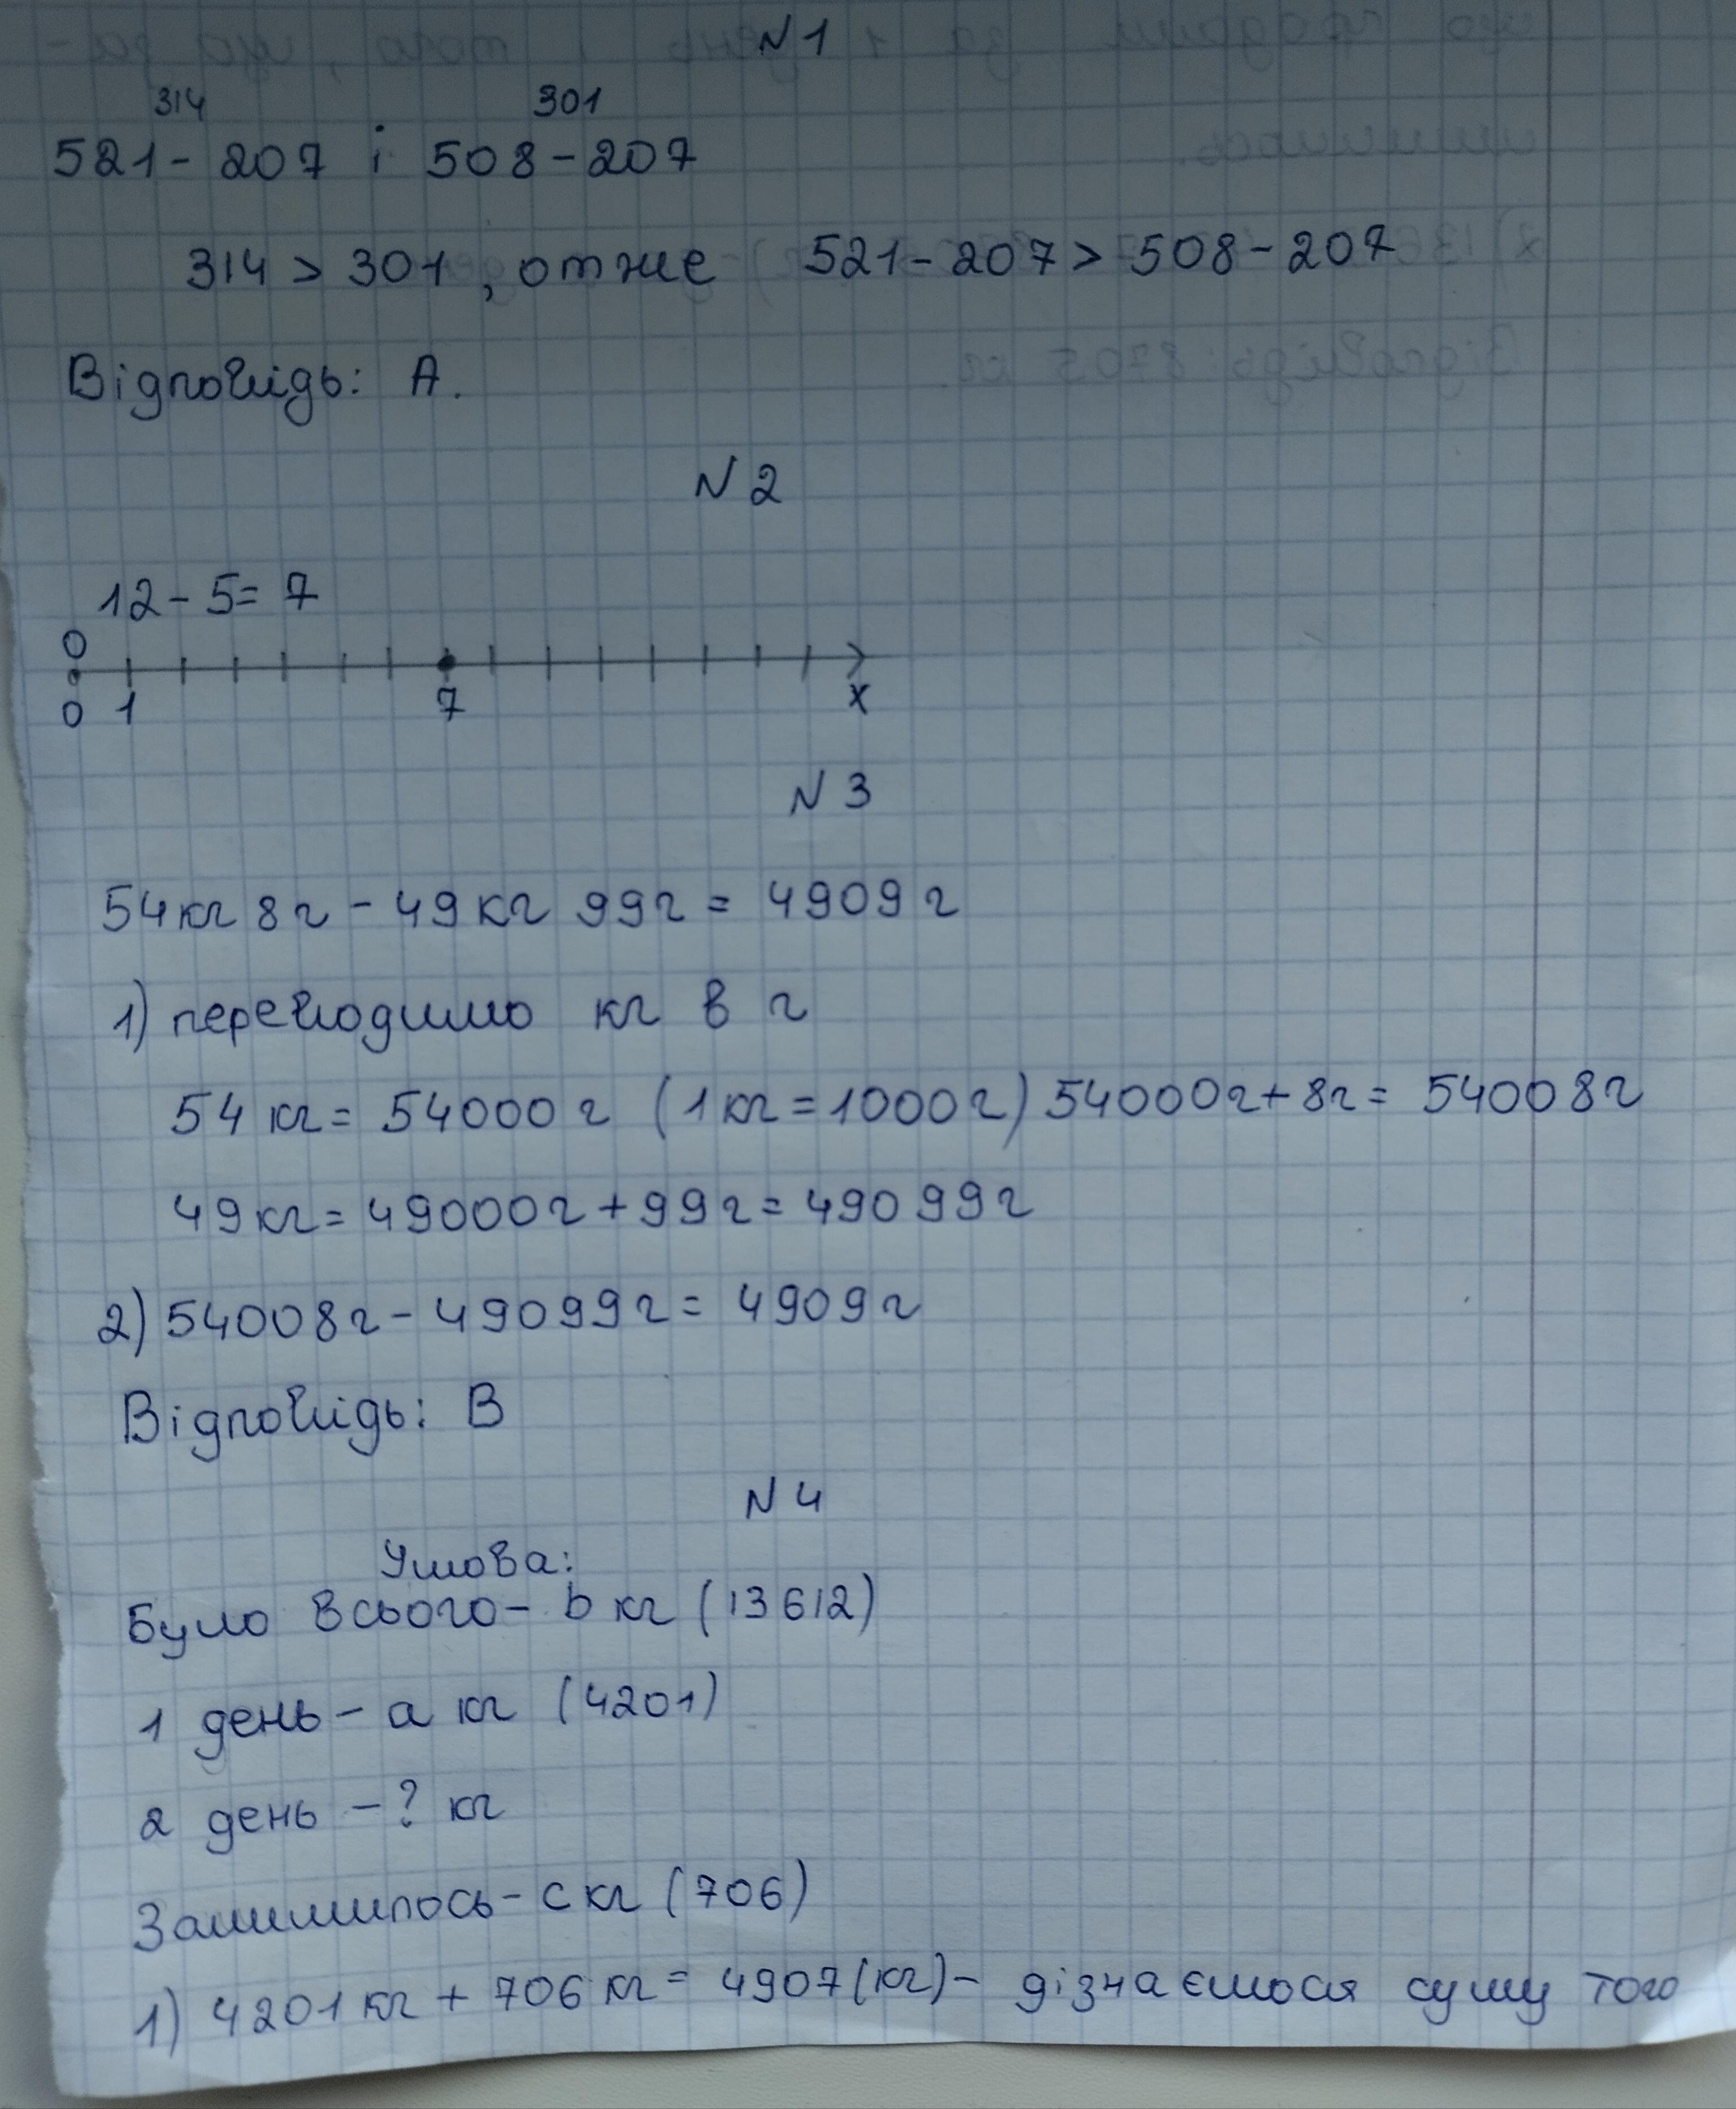 N1
314 301
521 - 207 і 508 - 207
314 > 301, отже 521 - 207 > 508 - 207
Відповідь: А.
N2
12 - 5 = 7
0
0 1 7 x
N3
54кг 8г - 49кг 99г = 4909г
1) переводимо кг в г
54 кг = 54000 г (1кг = 1000г) 54000г + 8г = 54008г
49кг = 49000г + 99г = 49099г
2) 54008г - 49099г = 4909г
Відповідь: В
N4
Умова:
Було всього - b кг (13612)
1 день - a кг (4201)
2 день - ? кг
Залишилось - c кг (706)
1) 4201кг + 706кг = 4907(кг) - дізнаємося суму того